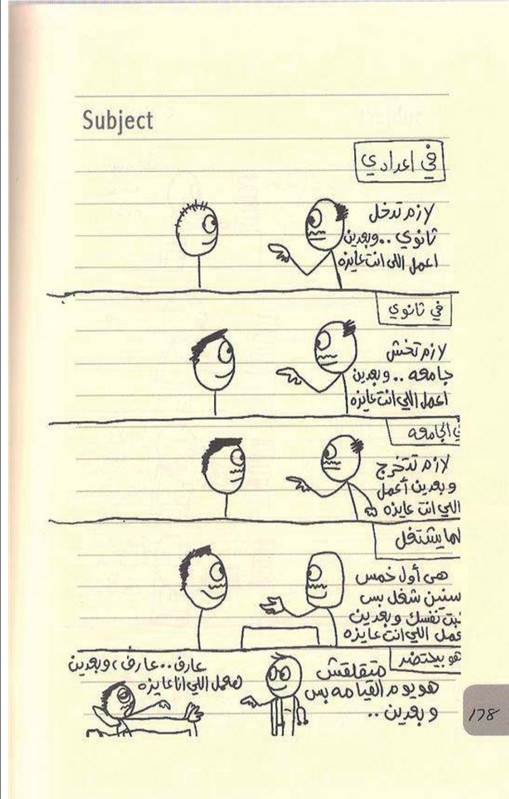 Subject
في اعدادي
لازم تدخل
ثانوي .. وبعدين
اعمل اللي انت عايزه
في ثانوي
لازم تخش
جامعه .. وبعدين
اعمل اللي انت عايزه
في الجامعه
لازم تتخرج
وبعدين أعمل
اللي انت عايزه
لما يشتغل
هي أول خمس
سنين شغل بس
ثبت نفسك وبعدين
اعمل اللي انت عايزه
وهو بيحتضر
متقلقش
هو يوم القيامه بس
وبعدين ..
عارف .. عارف ، وبعدين
هعمل اللي انا عايزه
178